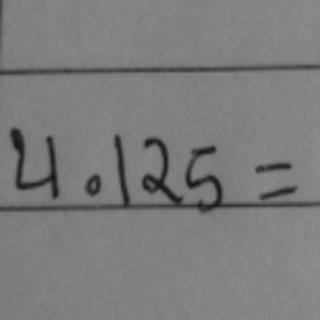 4.125 =